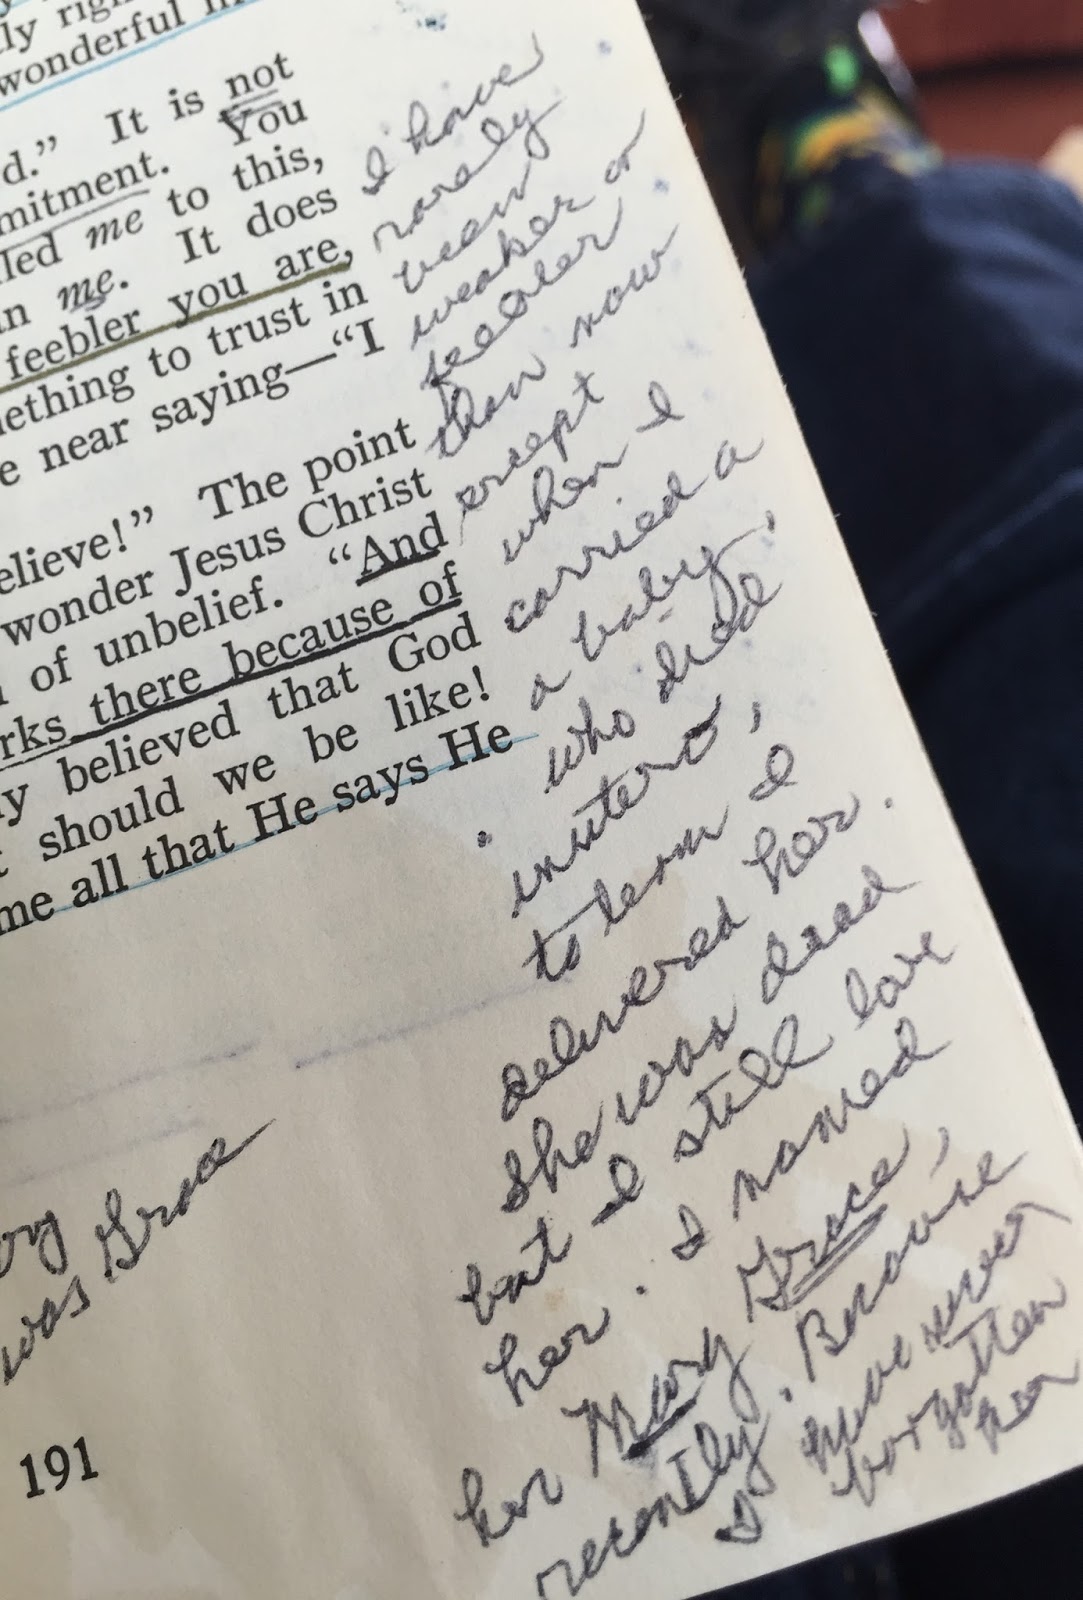 ly righ
wonderful
d.” It is not
mitment. You
led me to this,
n me. It does
feebler you are,
mething to trust in
e near saying—“I
elieve!” The point
wonder Jesus Christ
of unbelief. “And
rks there because of
y believed that God
t should we be like!
me all that He says He
I have
rarely
been
weaker or
feebler
than now
except
when I
carried a
a baby,
who died
inutero,
to term I
delivered her.
She was dead
but I still love
her. I named
her Mary Grace,
recently. Because
I have never
forgotten
her
ory
was Grace
191